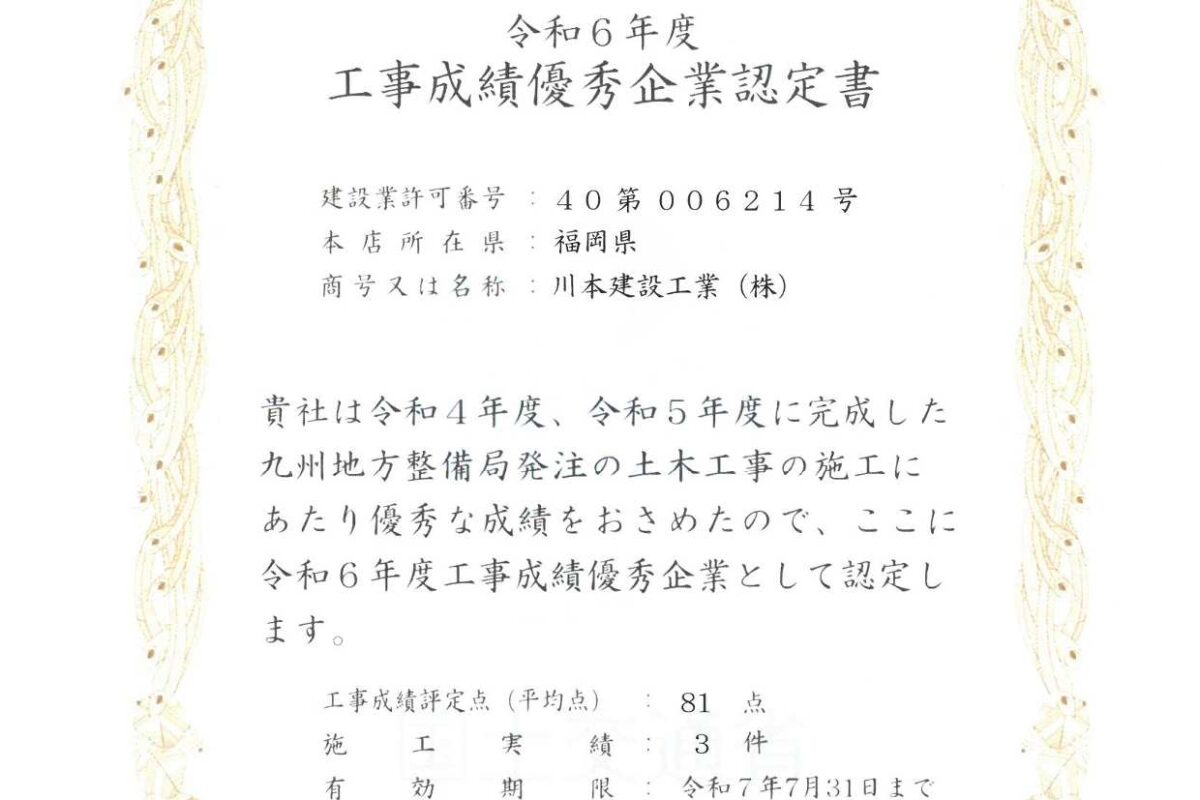 令和６年度
工事成績優秀企業認定書
建設業許可番号 ： ４０ 第 ００６２１４ 号
本店所在県 ： 福岡県
商号又は名称 ： 川本建設工業（株）
貴社は令和４年度、令和５年度に完成した
九州地方整備局発注の土木工事の施工に
あたり優秀な成績をおさめたので、ここに
令和６年度工事成績優秀企業として認定し
ます。
工事成績評定点（平均点） ： 81 点
施工実績 ： 3 件
有効期限 ： 令和７年7月31日まで
国土交通省